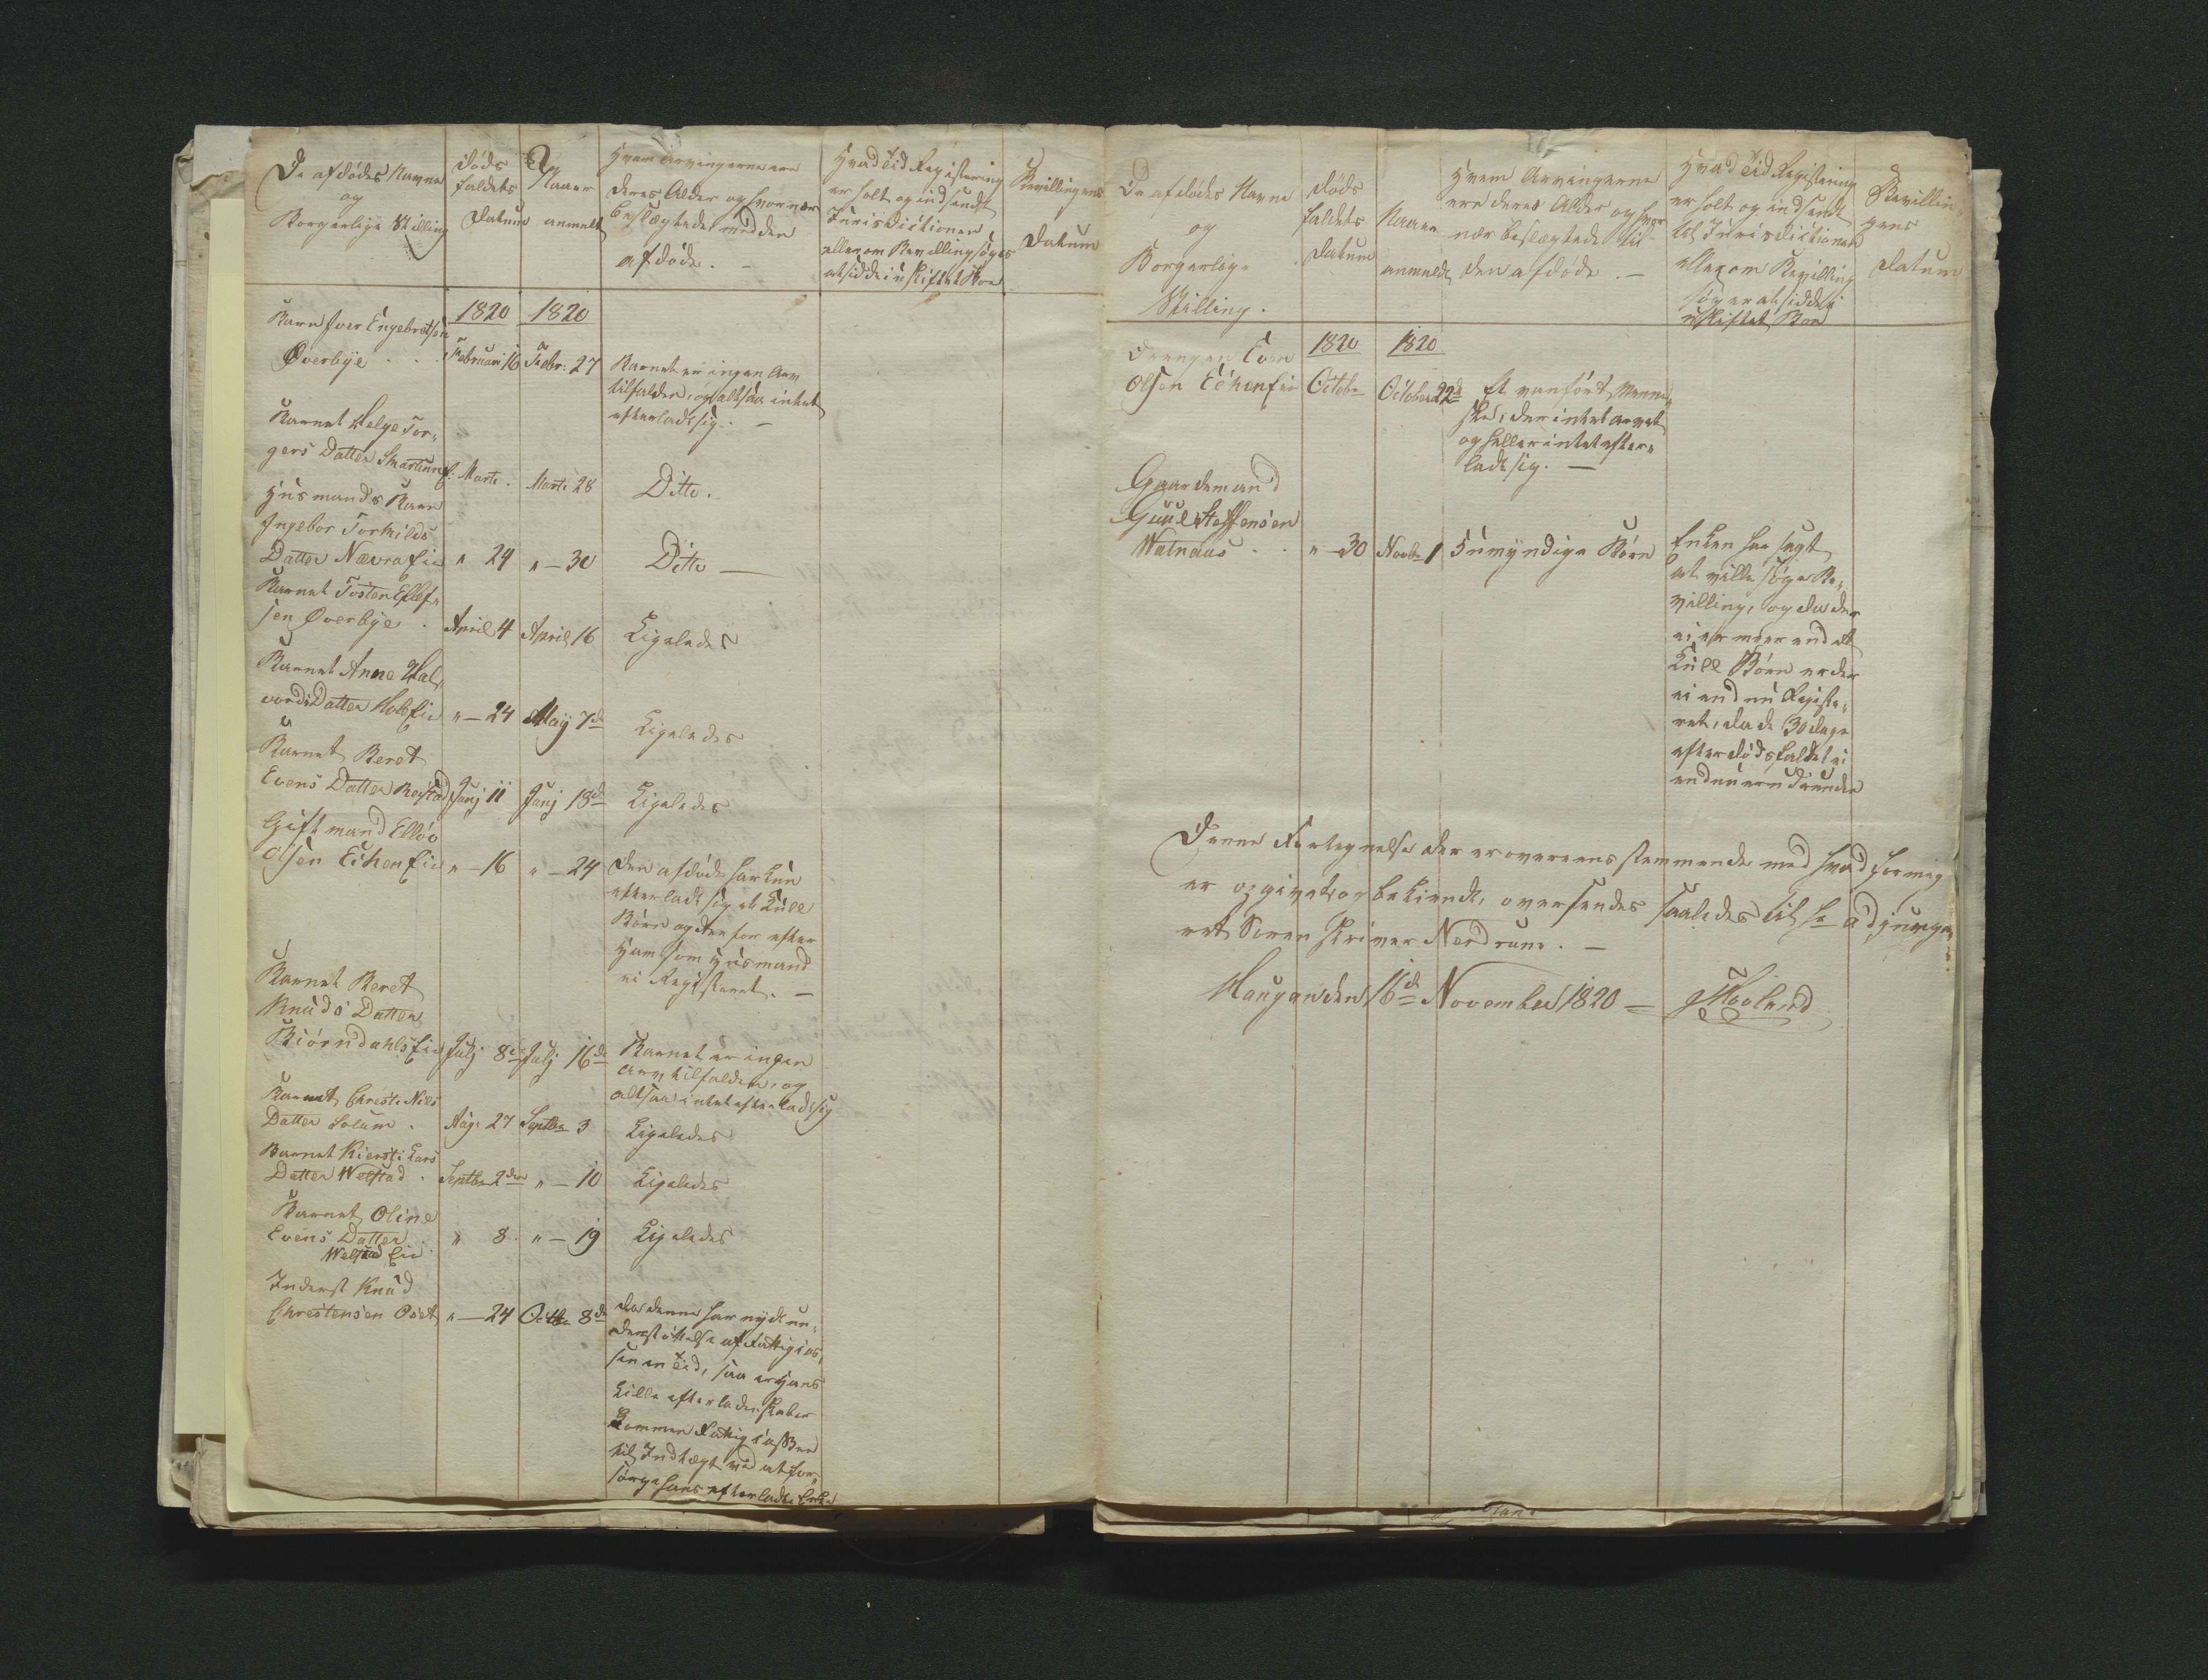 De afdødes Navne
og
Borgerlige Stilling
Døds
faldets
Datum
Naar
anmeldt
Hvem Arvingerne ere
deres Alder og hvor nær
beslægtede med den
afdøde. —
Hvad Tid Registering
er holt og indsendt
Jurisdictionen
eller om Bevilling søges
at sidde i uskiftet Boe
Bevillingens
Datum
1820 1820
Barn Iver Engebretsen
Øverbye . . . Februari 16 Febr: 27
Barnet er ingen Arv
tilfalden, og altsaa intet
efterladt sig. —
Barnet Helge Tor-
gers Datter
Marti . Marti 28 Ditto.
Husmands Barn
Ingebor Torkilds
Datter Nævra Eie " 24 " — 30 Ditto —
Barnet Tosten Ellef-
sen Øverbye . April 4 April 16 Ligeledes
Barnet Anne Hal-
vords Datter Eie " — 24 Maÿ 7de Ligeledes
Barnet Beret
Evens Datter Reistad Junj 11 Junj 18de Ligeledes
Gift mand Ellev
Olsen Eie " — 16 " — 24
Den afdøde har kun
efterladt sig et Kuld
Børn og derfor efter
Ham som Husmand
ei Registeret. —
Barnet Beret
Knuds Datter
Biørndahls Eie Julj 8de Julj 16de
Barnet er ingen
Arv tilfalden, og
altsaa intet efterladt sig
Barnet Christi Nils
Datter Solum . Aug: 27 Septbr 3 Ligeledes
Barnet Kiersti Lars
Datter Welstad . Septbr 2den " — 10 Ligeledes
Barnet Oline
Evens Datter
Welstad Eie " 8 . " — 19 Ligeledes
Inderst Knud
Christensen Oset " — 24 Octbr 8de
Da denne har nydt un-
derstøttelse af Fattigcas-
sen en Tid, saa er Hans
Lille efterladenskaber
kommen Fattigcassen
til Indtægt ved at for-
sørge hans efterladte Enke
De afdødes Navne
og
Borgerlige
Stilling.
Døds
faldets
Datum
Naar
anmeldt
Hvem Arvingerne
ere deres Alder og hvor
nær beslægtede til
den afdøde. —
Hvad Tid Registering
er holt og indsendt
til Jurisdictionen
eller om Bevilling
søges at sidde i
uskiftet Boe
Bevillin-
gens
Datum
1820 1820
Drengen Even
Olsen Eie Octobr October 22de
Et vanført Menne-
ske, der intet arvet
og heller intet efter-
ladt sig. —
Gaardemand
Guul Steffensen
Watnaas . . " — 30 Novbr 1 5 umyndige Børn
Enken har sagt
at ville søge Be-
villing, og da der
ei er meer end et
Kuld Børn er der
ei endnu Registe-
ret, da de 30 dage
efter dødsfaldet ei
endnu ere udrunden
Denne Fortegnelse der er overeensstemmende med hvad for mig
er opgivet og bekiendt, oversendes saaledes til Hr Adjunge-
ret Sorenskriver Nordrum. —
Haugan den 16de November 1820 — Høland